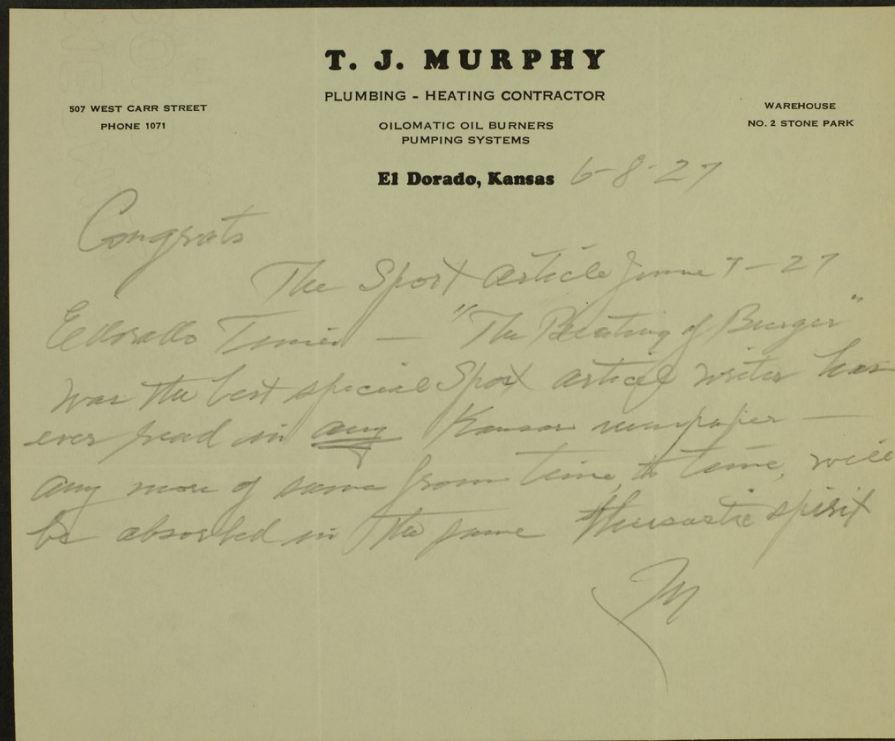 T. J. MURPHY
PLUMBING - HEATING CONTRACTOR
507 WEST CARR STREET
PHONE 1071
OILOMATIC OIL BURNERS
PUMPING SYSTEMS
WAREHOUSE
NO. 2 STONE PARK
El Dorado, Kansas 6-8-27
Congrats
The Sport article June 7-27
Eldorado Times — "The Beating of Burger"
was the best special Sport article writer has
ever read in any Kansas newspaper —
any more of same from time to time, will
be absorbed in the same thusastic spirit
M